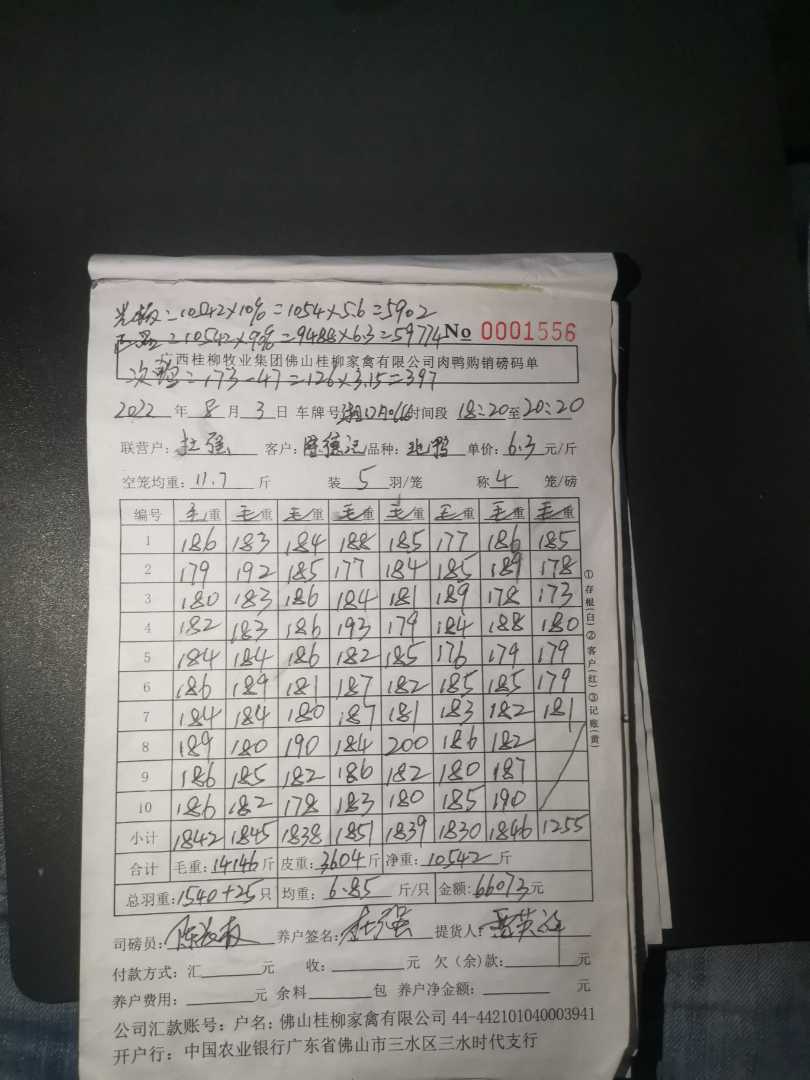 光板=10542×10%=1054×5.6=5902
=10542×90%=9488×6.3=59774 No 0001556
广西桂柳牧业集团佛山桂柳家禽有限公司肉鸭购销磅码单
次鸭=173-47=126×3.15=397
2022 年 8 月 3 日 车牌号 时间段 18:20 至 20:20
联营户: 杜强 客户: 品种: 单价: 6.3 元/斤
空笼均重: 11.7 斤 装 5 羽/笼 称 4 笼/磅
编号 毛重 毛重 毛重 毛重 毛重 毛重 毛重 毛重
1 186 183 184 188 185 177 186 185
2 179 192 185 177 184 185 189 178
3 180 183 186 184 181 189 178 173
4 182 183 186 193 179 184 188 180
5 184 184 186 182 185 176 179 179
6 186 189 181 187 182 185 185 179
7 184 184 180 187 181 183 182 181
8 189 180 190 184 200 186 182
9 186 185 182 186 182 180 187
10 186 182 178 183 180 185 190
小计 1842 1845 1838 1851 1839 1830 1846 1255
合计 毛重: 14146 斤 皮重: 3604 斤 净重: 10542 斤
总羽重: 1540+25 只 均重: 6.85 斤/只 金额: 66073 元
①存根(白)②客户(红)③记账(黄)
司磅员: 养户签名: 杜强 提货人:
付款方式: 汇 元 收: 元 欠(余)款: 元
养户费用: 元 余料 包 养户净金额: 元
公司汇款账号: 户名: 佛山桂柳家禽有限公司 44-442101040003941
开户行: 中国农业银行广东省佛山市三水区三水时代支行